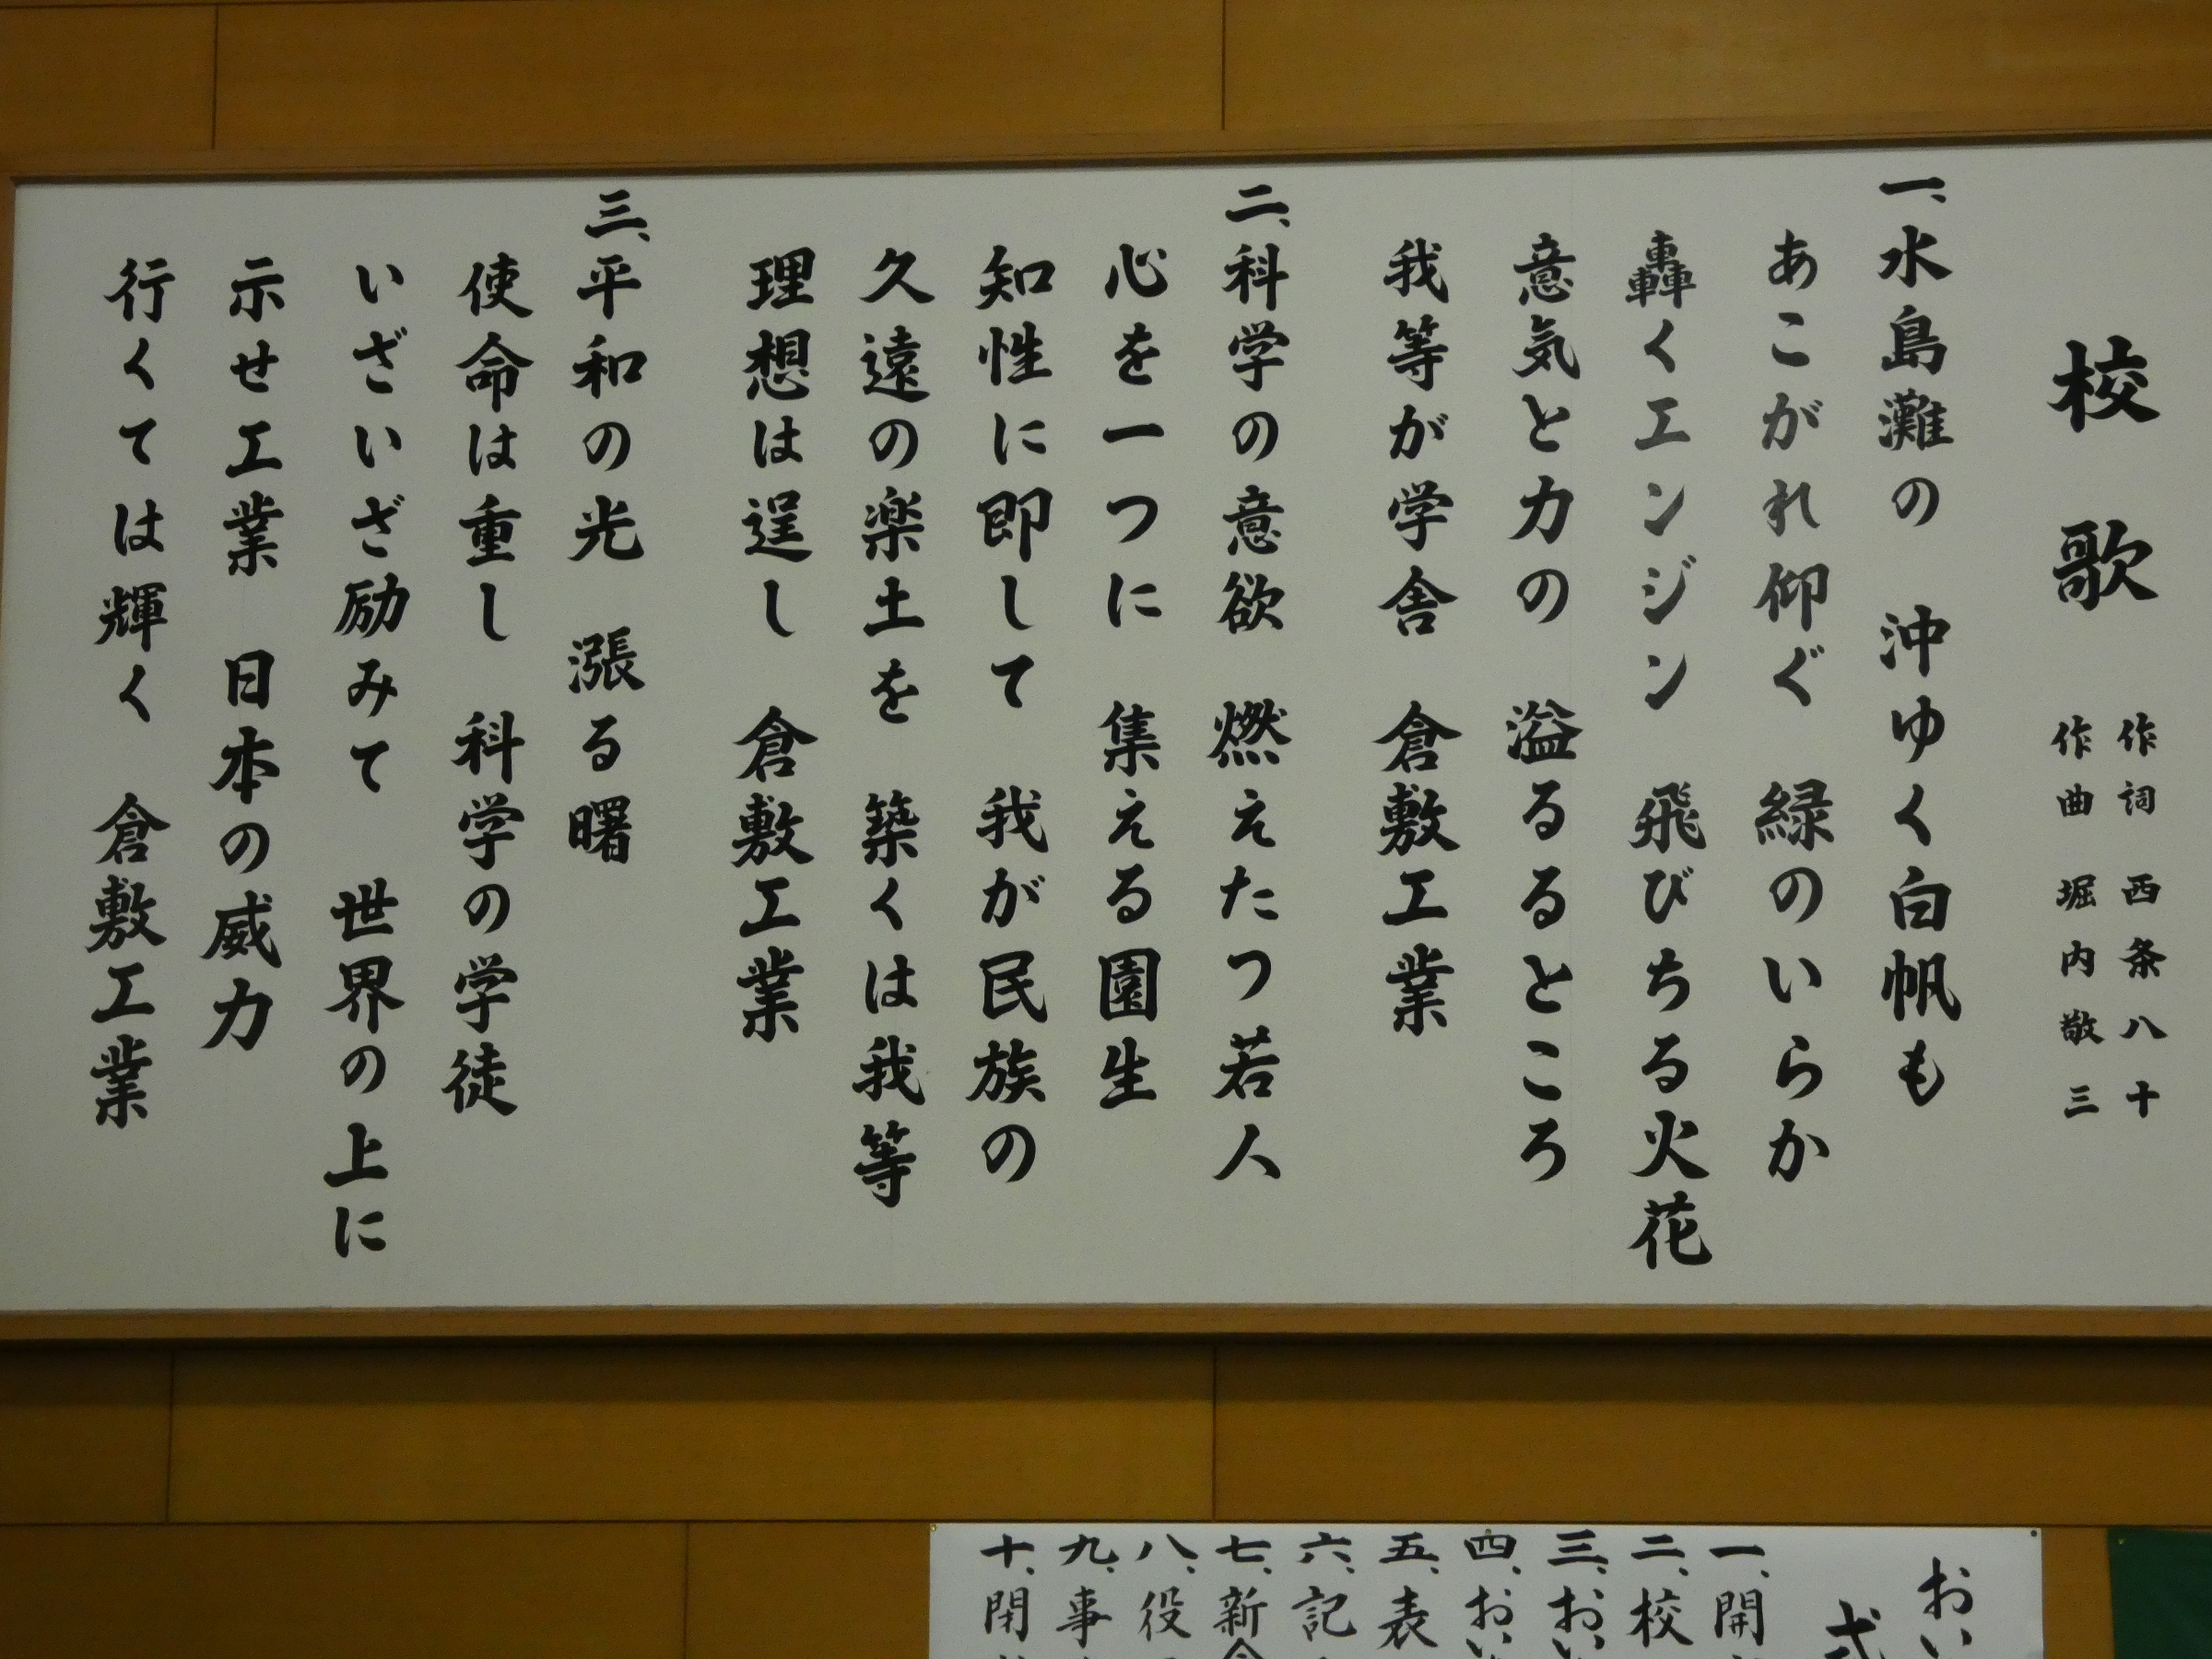 校歌
作詞 西条八十
作曲 堀内敬三
一、水島灘の 沖ゆく白帆も
あこがれ仰ぐ 緑のいらか
轟くエンジン 飛びちる火花
意気と力の 溢るるところ
我等が学舎 倉敷工業
二、科学の意欲 燃えたつ若人
心を一つに 集える園生
知性に即して 我が民族の
久遠の楽土を 築くは我等
理想は逞し 倉敷工業
三、平和の光 漲る曙
使命は重し 科学の学徒
いざいざ励みて 世界の上に
示せ工業 日本の威力
行くては輝く 倉敷工業
おい
式
一、開
二、校
三、おい
四、おい
五、表
六、記
七、新会
八、役
九、事
十、閉